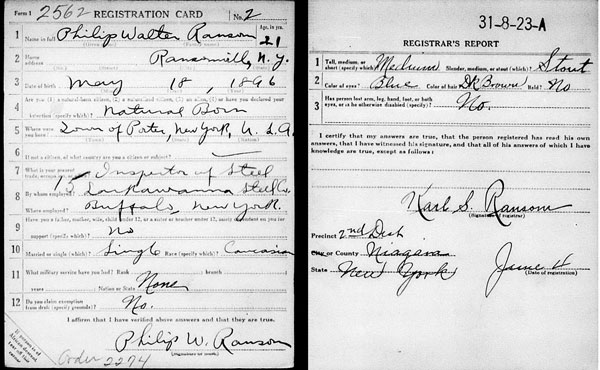 Form 1 2562 REGISTRATION CARD No. 2
1 Name in full Philip Walter Ransom Age, in yrs. 21
2 Home address Ransomville, N.Y.
3 Date of birth May 18, 1896
4 Are you (1) a natural-born citizen, (2) a naturalized citizen, (3) an alien, (4) or have you declared your
intention (specify which)? Natural Born
5 Where were you born? Town of Porter, New York, U.S.A.
6 If not a citizen, of what country are you a citizen or subject?
7 What is your present trade, occupation, or office? 15 Inspector of Steel
8 By whom employed? Lackawanna Steel Co.
Where employed? Buffalo, New York.
9 Have you a father, mother, wife, child under 12, or a sister or brother under 12, solely dependent on you for
support (specify which)? No
10 Married or single (which)? Single Race (specify which)? Caucasian
11 What military service have you had? Rank branch
years Nation or State None
12 Do you claim exemption from draft (specify grounds)? No.
I affirm that I have verified above answers and that they are true.
Philip W. Ransom
(Signature or mark)
If person is of African descent, tear off this corner
Order 2274
31-8-23-A
REGISTRAR'S REPORT
1 Tall, medium, or short (specify which)? Medium Slender, medium, or stout (which)? Stout
2 Color of eyes? Blue Color of hair? Dk Brown Bald? No
3 Has person lost arm, leg, hand, foot, or both eyes, or is he otherwise disabled (specify)? No.
I certify that my answers are true, that the person registered has read his own
answers, that I have witnessed his signature, and that all of his answers of which I have
knowledge are true, except as follows:
Karl S. Ransom
(Signature of registrar)
Precinct 2nd Dist
City or County Niagara
State New York
June 4
(Date of registration)